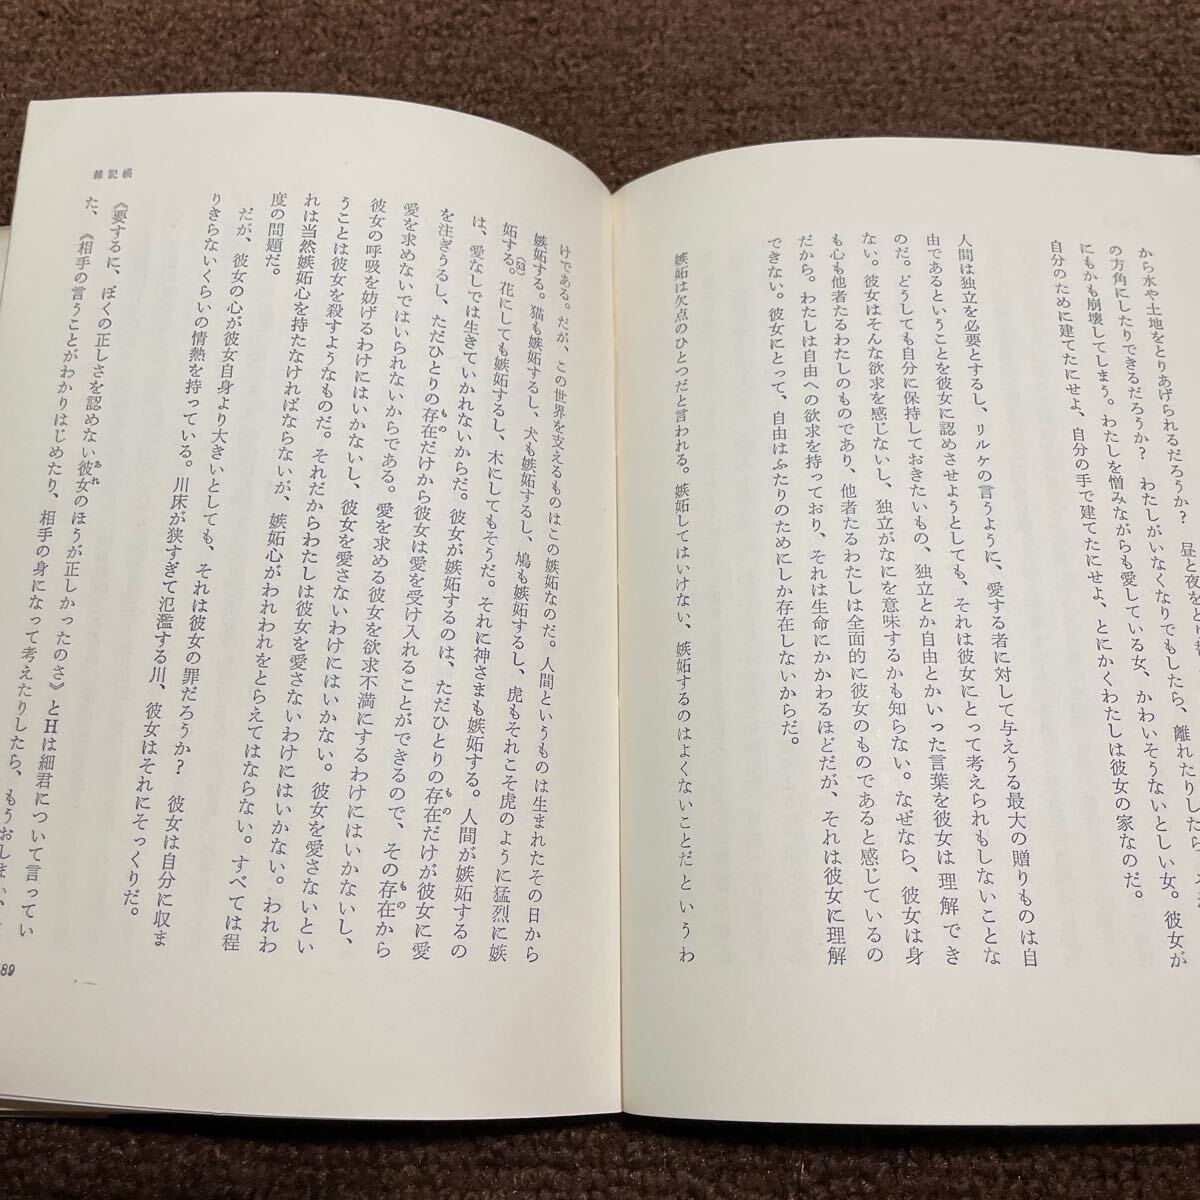 から水や土地をとりあげられるだろうか？　昼と夜を
の方角にしたりできるだろうか？　わたしがいなくなりでもしたら、離れたりしたら、
にもかも崩壊してしまう。わたしを憎みながらも愛している女、かわいそうないとしい女。彼女が
自分のために建てたにせよ、自分の手で建てたにせよ、とにかくわたしは彼女の家なのだ。
人間は独立を必要とするし、リルケの言うように、愛する者に対して与えうる最大の贈りものは自
由であるということを彼女に認めさせようとしても、それは彼女にとって考えられもしないことな
のだ。どうしても自分に保持しておきたいもの、独立とか自由とかいった言葉を彼女は理解でき
ない。彼女はそんな欲求を感じないし、独立がなにを意味するかも知らない。なぜなら、彼女は身
も心も他者たるわたしのものであり、他者たるわたしは全面的に彼女のものであると感じているの
だから。わたしは自由への欲求を持っており、それは生命にかかわるほどだが、それは彼女に理解
できない。彼女にとって、自由はふたりのためにしか存在しないからだ。
嫉妬は欠点のひとつだと言われる。嫉妬してはいけない、嫉妬するのはよくないことだというわ
けである。だが、この世界を支えるものはこの嫉妬なのだ。人間というものは生まれたその日から
嫉妬する。猫も嫉妬するし、犬も嫉妬するし、鳩も嫉妬するし、虎もそれこそ虎のように猛烈に嫉
妬する。(53)花にしても嫉妬するし、木にしてもそうだ。それに神さまも嫉妬する。人間が嫉妬するの
は、愛なしでは生きていかれないからだ。彼女が嫉妬するのは、ただひとりの存在だけが彼女に愛
を注ぎうるし、ただひとりの存在だけから彼女は愛を受け入れることができるので、その存在から
愛を求めないではいられないからである。愛を求める彼女を欲求不満にするわけにはいかないし、
彼女の呼吸を妨げるわけにはいかないし、彼女を愛さないわけにはいかない。彼女を愛さないとい
うことは彼女を殺すようなものだ。それだからわたしは彼女を愛さないわけにはいかない。われわ
れは当然嫉妬心を持たなければならないが、嫉妬心がわれわれをとらえてはならない。すべては程
度の問題だ。
だが、彼女の心が彼女自身より大きいとしても、それは彼女の罪だろうか？　彼女は自分に収ま
りきらないくらいの情熱を持っている。川床が狭すぎて氾濫する川、彼女はそれにそっくりだ。
《要するに、ぼくの正しさを認めない彼女のほうが正しかったのさ》とHは細君について言ってい
た、《相手の言うことがわかりはじめたり、相手の身になって考えたりしたら、もうおしまい
雑記帳
89